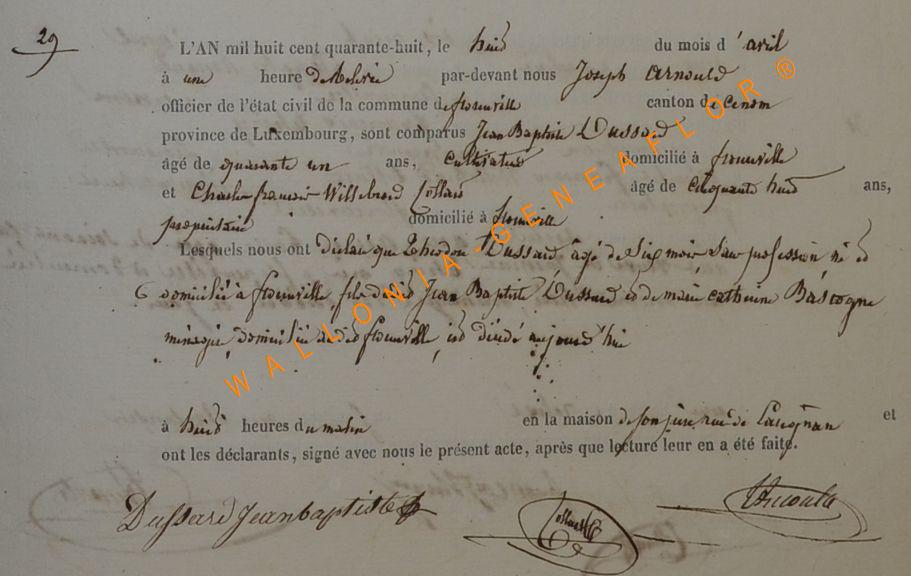 29
L'AN mil huit cent quarante-huit, le huit du mois d'avril
à une heure de Relevée par-devant nous Joseph Arnould
officier de l'état civil de la commune de florenville canton de
province de Luxembourg, sont comparus Jean Baptiste Dussard
âgé de quarante un ans, Cultivateur domicilié à florenville
et Charles françois Willebrord Collard âgé de Cinquante huit ans,
propriétaire domicilié à florenville
Lesquels nous ont déclaré que Théodore Dussard âgé de Six mois Sans profession né et
domicilié à florenville fils dudit Jean Baptiste Dussard et de marie catherine Bastogne
ménagère domiciliée audit florenville, est décédé aujourd'hui
à huit heures du matin en la maison de son père rue de Carignan et
ont les déclarants, signé avec nous le présent acte, après que lecture leur en a été faite.
Dussard Jean baptiste Collard JArnould
WALLONIA-GENEAFLOR ®